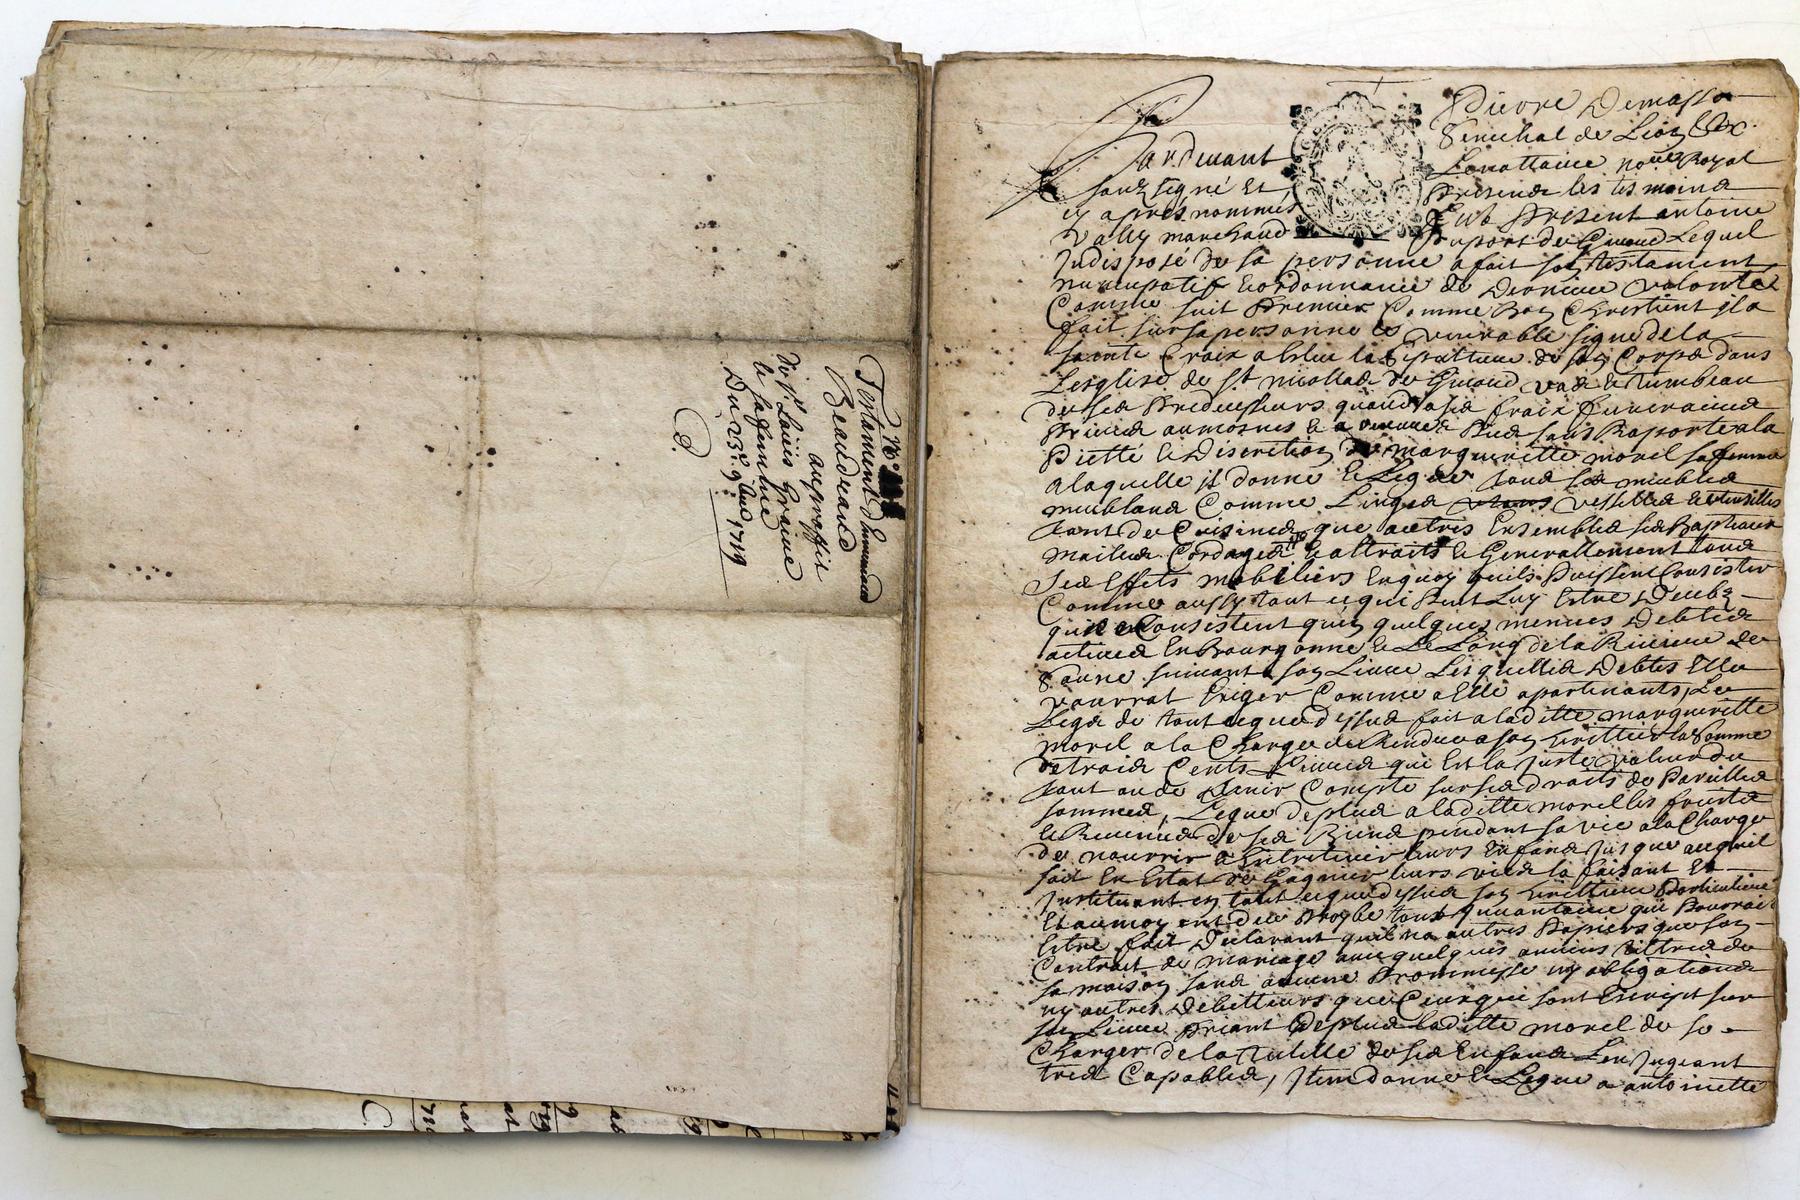 Testament d'hummind
Beaudrand
au proffit
de Sr Louis graine
& sa femme
Du 23e 9bre 1719
Pierre Demasso
Senechal de Lion &c.
Pardevant
Le nottaire Royal
souz signé Et
Presends les tesmoins
cy aprés nommés
fut Present antoine
Vally marchand
du port de Givord Lequel
Indisposé de sa personne a fait son testament
nuncupatif & ordonnance de derniere volonté
Comme suit Premier Comme bon Chrestient il a
fait sur sa personne le venerable signe de la
sainte Croix a esleu la sepulture de son Corps dans
Lesglise de st nicollas de Givord vas & tumbeau
de ses Predecesseurs quand a ses fraix funeraires
Prieres aumosnes & œuvres Pies sans Raporte a la
Pietté & Discretion de marguerette morel sa femme
a laquelle il donne & Legue tous ses meubles
meublans Comme Linges vesselles & utensilles
tant de Cuisines que autres Ensembles ses Bapteaux
mailles Cordages & attraits & Generallement tous
ses Effets mobiliers En quoy quils Puissent Consister
Comme aussy tout ce qui Peut Luy Estre Deub
qui Consistent qu'en quelques menues Debtes
actives En Bourgonne & Le Long de la Riviere de
Saune suivant son Livre Lesquelles Debtes Elle
pourrat Exiger Comme a Elle apartenants, Le
Legs de tout ce que dessus fait a laditte marguerette
morel a la Charge de Rendre a son heritier la somme
de trois Cents Livres qui Est la juste valeur du
tout ou de tenir Compte sur ses droits de Pareilles
sommes, Legue de plus a laditte morel les fruits
& Revenus de ses Biens pendant sa vie a la Charge
de nourrir & Entretenir leurs Enfans jusque a ce quil
soit En Estat de Gagnier leurs vie la faisant Et
Instituant en tout ce que dessus son heritiere Particuliere
Estre fait Declarant quil n'a autres Papiers que son
Contrait de mariage avec quelques anciens tittres de
sa maison sans aucune Prommesse ny obligations
ny autres Debitteurs que Ceux qui sont Escript sur
son Livre Priant de plus laditte morel de se
Charger de la tutelle de ses Enfans L'en jugeant
tres Capables, Item donne & Legue a antoinette